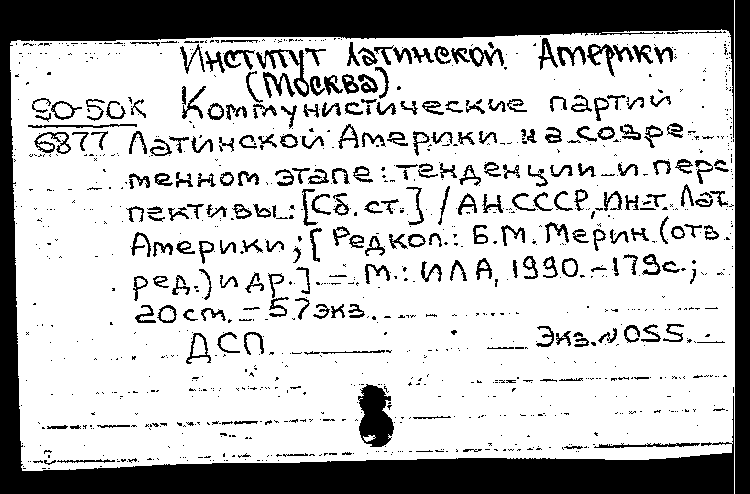 Институт Латинской Америки
(Москва).
90-50К Коммунистические партий
6877 Латинской Америки на совре-
менном этапе: тенденции и перс
пективы: [Сб. ст.] / АН СССР, Ин-т. Лат.
Америки; [Редкол.: Б.М. Мерин (отв.
ред.) и др.] – М.: ИЛА, 1990. – 179с.;
20 cm. – 57 экз.
ДСП. Экз. N 055.